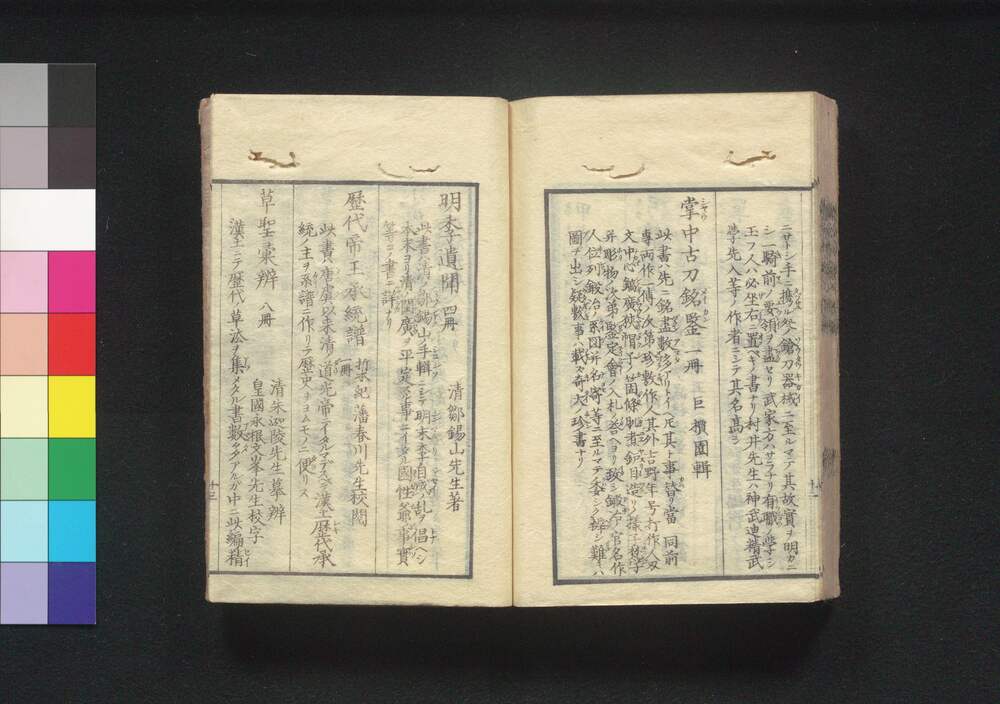 ニサトシ手ニ携フル処ノ鎗刀器械ニ至ルマデ其故實ヲ明カニ
シ一騎前ノ要領ヲ盡セリ武家ノ方ハサラナリ有職ノ学ヲシ
玉フ人ハ必坐右ニ置ベキノ書ナリ村井先生ハ神武迪精武
学先入等ノ作者ニシテ其名高シ
掌中古刀銘鑒 一冊 巨摸園輯
此書ハ先ニ銘盡数多アリトイヘ𪜈其ト事替リ當同前
専両作一傳ノ次第珍敷作人其外吉野年号打作人双
文中心鑢廣狭帽子ノ箇條
并彫物ノ次第鑒定會ノ入札ノ答ヘヨリ致シ鍛冶官名作
人位列鍛冶ノ系図并名寄等ニ至ルマデ委シク辨シ難キハ
圖ヲ出シ数事ヲ載ス奇大ノ珍書ナリ
十二
明季遺聞 四冊 清鄒錫山先生著
此書ハ清ノ鄒錫山ノ手輯ニシテ明末李自成乱ヲ倡ヘシ
本末ヨリ清閩廣ヲ平定スル事ニイタル國性爺事實
等コノ書ニ詳ナリ
歴代帝王承統譜 一冊 紀藩春川先生校閲
此書唐虞以来清ノ道光帝ニイタルマデスベテ漢土歴代承
統ノ主ヲ系譜ニ作リテ歴史ヲヨムモノニ便リス
草聖彙辨 八冊 清朱先生摹辨
皇國永根文峯先生校字
漢土ニテ歴代ノ草法ヲ集メタル書数多アルガ中ニ此編精
十三